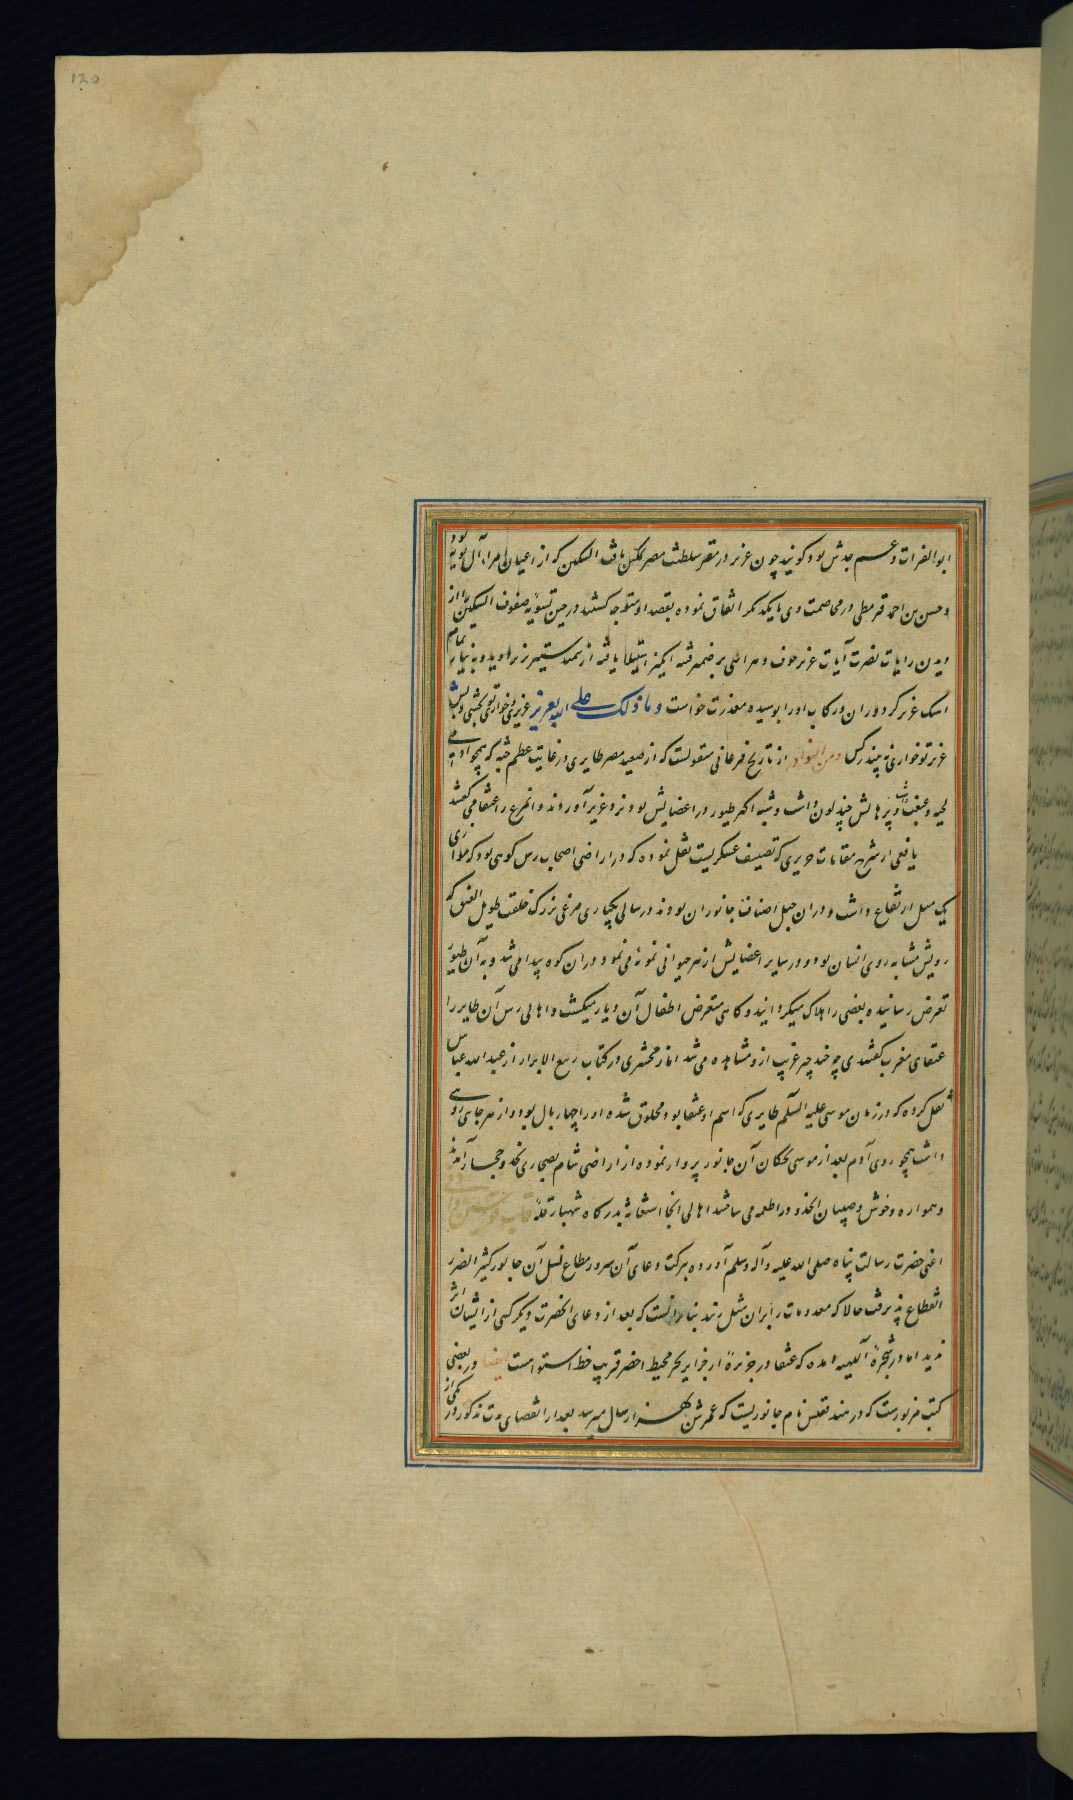 120
ابوالفرات و عم جدش بود گویند چون عزیز در مقر سلطنت مصر تمکین یافت الپتکین که از اعیان امراء آل بویه بود
و حسن بن احمد قرمطی در مخاصمت وی با یکدیگر اتفاق نموده بقصد او متوجه کشتند در حین تسویه صفوف الپتکین را از
دیدن رایات نصرت آیات عزیز خوف و هراسی بر ضمیر فتنه انکیز استیلا یافته از سمند ستیز بزیر دوید و به نیاز تمام
اسک عزیز کرد و ران و رکاب او را بوسیده معذرت خواست و ما ذلک علی الله بعزیز عزیزی و خواری تو بخشی و بس
عزیز تو خواری نه بیند ز کس و من النوادر از تاریخ فرغانی منقولست که از صعید مصر طایری در غایت عظم جثه که همچو آدمی
لحیه و غبغب داشت و پرهایش چند لون داشت و شبه اکثر طیور در اعضایش بود نزد عزیز آوردند و آنمرغ را عنقا می گفتند
یافعی از شرح مقامات حریری که تصنیف عسکریست نقل نموده که در اراضی اصحاب رس کوهی بود که موازی
یک میل ارتفاع داشت و در ان جبل اصناف جانوران بودند در سالی یکباری مرغی بزرک خلقت طویل العنق که
رویش مشابه روی انسان بود و در سایر اعضایش از هر حیوانی نمونهٔ می نمود در ان کوه پیدا می شد و به آن طیور
تعرض رسانیده بعضی را هلاک میکردانید و کاهی متعرض اطفال آن دیار میکشت و اهالی رس آن طایر را
عنقای مغرب گفتندی چه خند چیز غریب ازو مشاهده می شد اما زمخشری در کتاب ربیع الابرار از عبد الله عباس
نقل کرده که در زمان موسی علیه السلم طایری که اسم او عنقا بود مخلوق شده او را چهار بال بود و از هر جانبی روی
داشت همچو روی آدم بعد از موسی نحکان آن جانور پرواز نموده از اراضی شام بصحاری نجد و حجاز آمدند
و همواره وحوش و صبیان انحدود را طعمه می ساختند اهالی انجا استغاثه بدرکاه شهباز قلهٔ قاب قوسین
اعنی حضرت رسالت پناه صلی الله علیه و آله و سلم آورده ببرکت دعای آن سرور مطاع نسل آن جانور کثیر الضرر
انقطاع پذیرفت حالا که معدومات را بران مثل زنند بنا برانست که بعد از دعای انحضرت دیکر کسی از ایشان اثر
ندید اما در شجرهٔ آلهیه امده که عنقا در جزیرهٔ از جزایر بحر محیط اخضر قریب خط استوا است ایضا در بعضی
کتب مزبورست که در هند ققنس نام جانوریست که عمرش بهزار سال میرسد بعد از انقضای مدت مذکور در یکی از